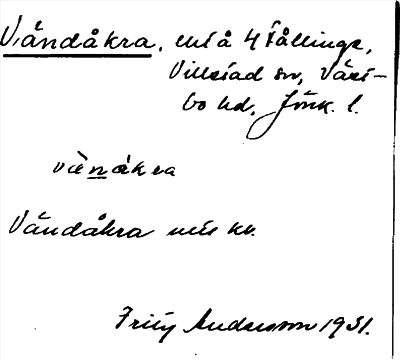 Vändåkra, ení å 4 Fållinge,
Villstad sn, Väst-
bo hd, Jönk. l.
vä̀nåkra
Vändåkra
Frity Andersson 1931.